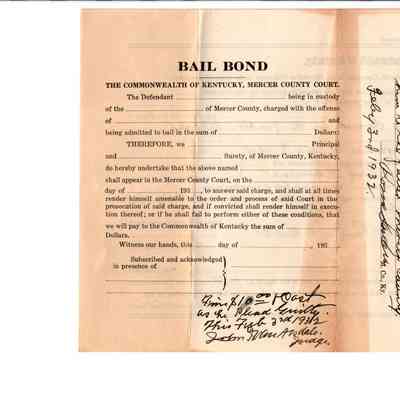 BAIL BOND
THE COMMONWEALTH OF KENTUCKY, MERCER COUNTY COURT.
The Defendant being in custody
of the of Mercer County, charged with the offense
of and
being admitted to bail in the sum of Dollars:
THEREFORE, we Principal
and Surety, of Mercer County, Kentucky,
do hereby undertake that the above named
shall appear in the Mercer County Court, on the
day of 193 , to answer said charge, and shall at all times
render himself amenable to the order and process of said Court in the
prosecution of said charge, and if convicted shall render himself in execu-
tion thereof; or if he shall fail to perform either of these conditions, that
we will pay to the Commonwealth of Kentucky the sum of
Dollars.
Witness our hands, this day of , 193
Subscribed and acknowledged
in presence of
Fine $10.00 & Cost
as he Plead Guilty.
This Feb 3rd 1932
John Van Arsdale.
Judge.
Feby 3rd 1932.
Co. Ky.